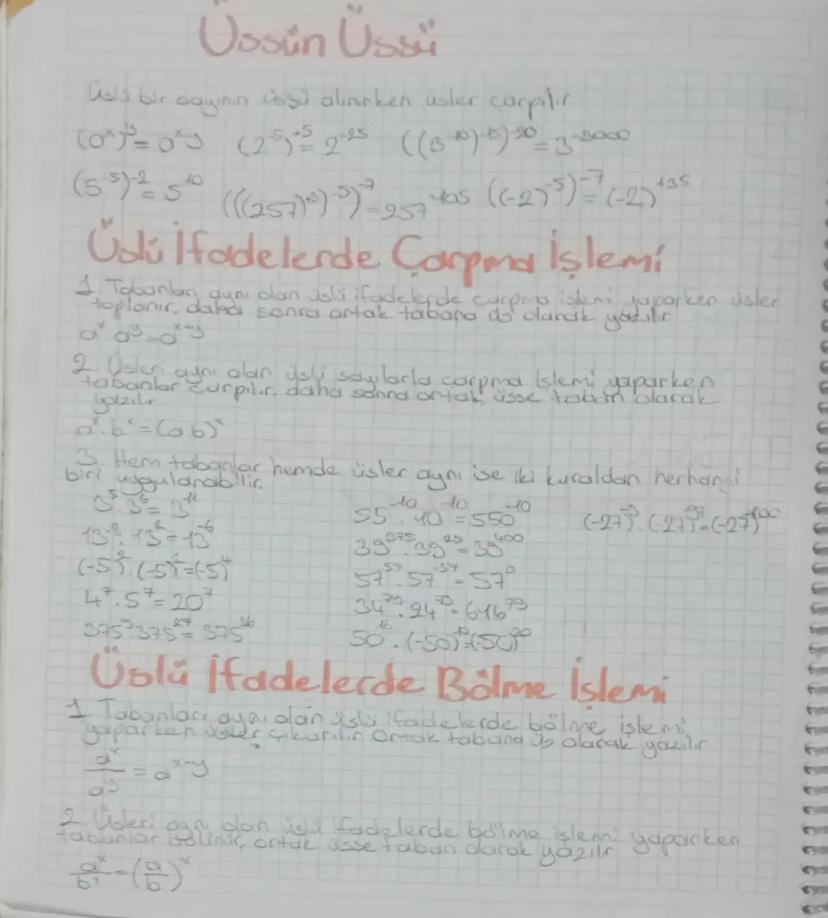 Üssün Üssü
Üslü bir sayının üssü alınırken üsler çarpılır.
(a^x)^y = a^x·y (2^-5)^+5 = 2^-25
(5^-5)^-2 = 5^10 ((-2)^-5)^-7 = (-2)^+35
Üslü İfadelerde Çarpma İşlemi
1. Tabanları aynı olan üslü ifadelerde çarpma işlemi yaparken üsler
toplanır, daha sonra ortak tabana üs olarak yazılır
a^x . a^y = a^x+y
2. Üsleri aynı olan üslü sayılarla çarpma işlemi yaparken
tabanlar çarpılır, daha sonra ortak üsse taban olarak
yazılır
a^x . b^x = (a b)^x
3. Hem tabanlar hemde üsler aynı ise iki kuraldan herhangi
biri uygulanabilir.
3^5 . 3^6 = 3^11 55^-10 . 10^-10 = 550^-10
13^-8 . 13^2 = 13^-6 39^375 . 39^25 = 39^400
(-5)^2 . (-5)^2 = (-5)^4 57^57 . 57^-57 = 57^0
4^7 . 5^7 = 20^7
375^9 . 375^27 = 375^36
Üslü İfadelerde Bölme İşlemi
1. Tabanları aynı olan üslü ifadelerde bölme işlemi
yaparken üsler çıkarılır ortak tabana üs olarak yazılır
a^x / a^y = a^x-y
2. Üsleri aynı olan üslü ifadelerde bölme işlemi yaparken
tabanlar bölünür, ortak üsse taban olarak yazılır
a^x / b^x = (a/b)^x